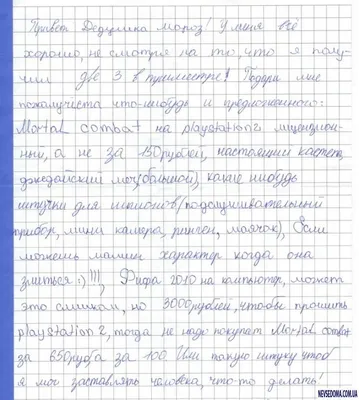 Привет Дедушка мороз! У меня все
хорошо, не смотря на то, что я полу-
чил две 3 в триместре! Подари мне
пожалуйста что-нибудь и предложенного:
Mortal combat на playstation2 лицензион-
ный, а не за 150рублей, настоящий кастет,
джедайский меч(большой), какие нибудь
штучки для шпионов(подслушивательный
прибор, мини камера, маячок), Если
можешь мамин характер когда она
злиться :)!!!, Фифа 2010 на кампьютер, может
это слишком, но 3000рублей, чтобы прошить
playstation 2, тогда не надо покупат Mortal combat
за 650руб за 100 Или такую штуку чтоб
я мог заставлять человека, что-то делать!
NEVSEDOMA.COM.UA